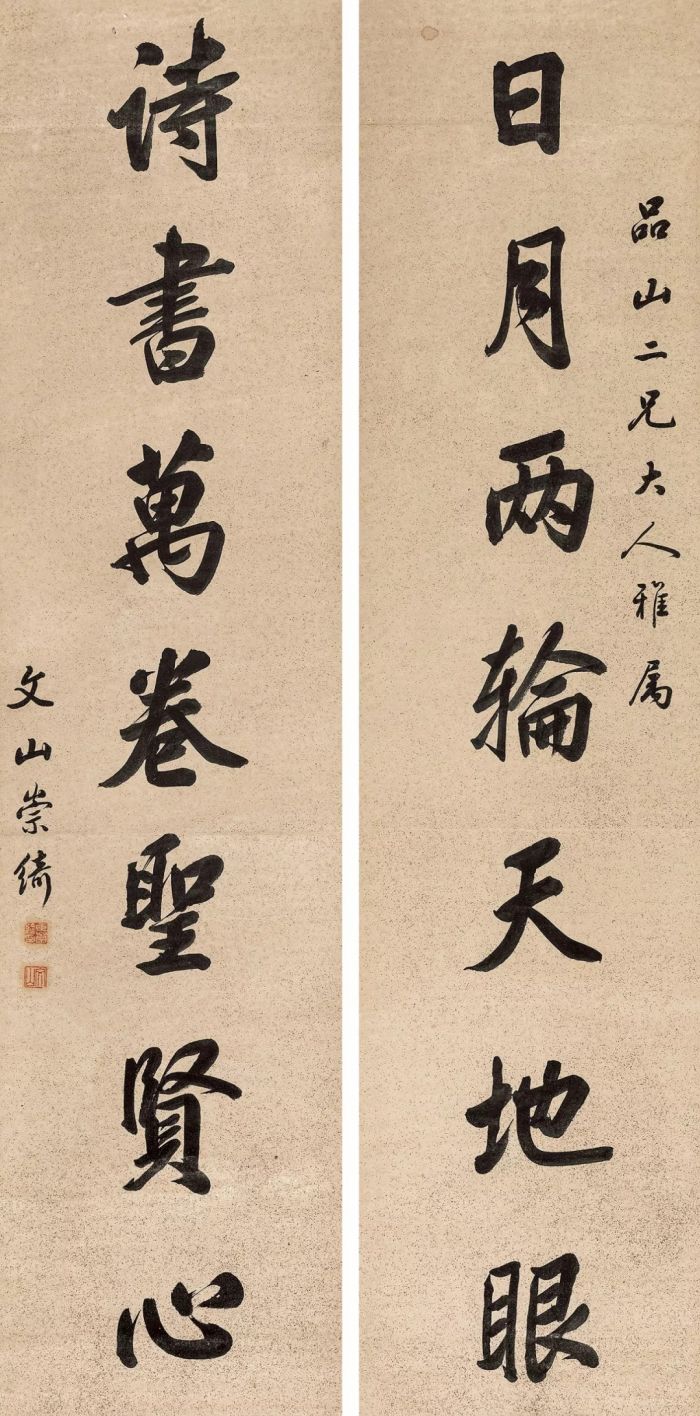 品山二兄大人雅属
日月两轮天地眼
诗書萬卷聖賢心
文山崇绮